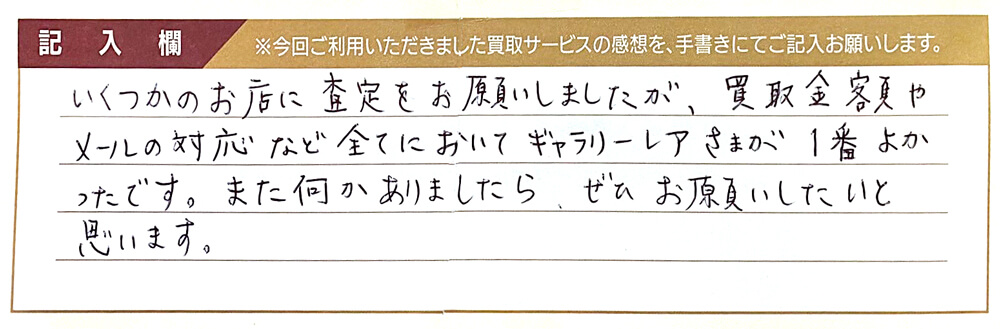 記入欄 ※今回ご利用いただきました買取サービスの感想を、手書きにてご記入お願いします。
いくつかのお店に査定をお願いしましたが、買取金額や
メールの対応など全てにおいてギャラリーレアさまが1番よか
ったです。また何かありましたら、ぜひお願いしたいと
思います。